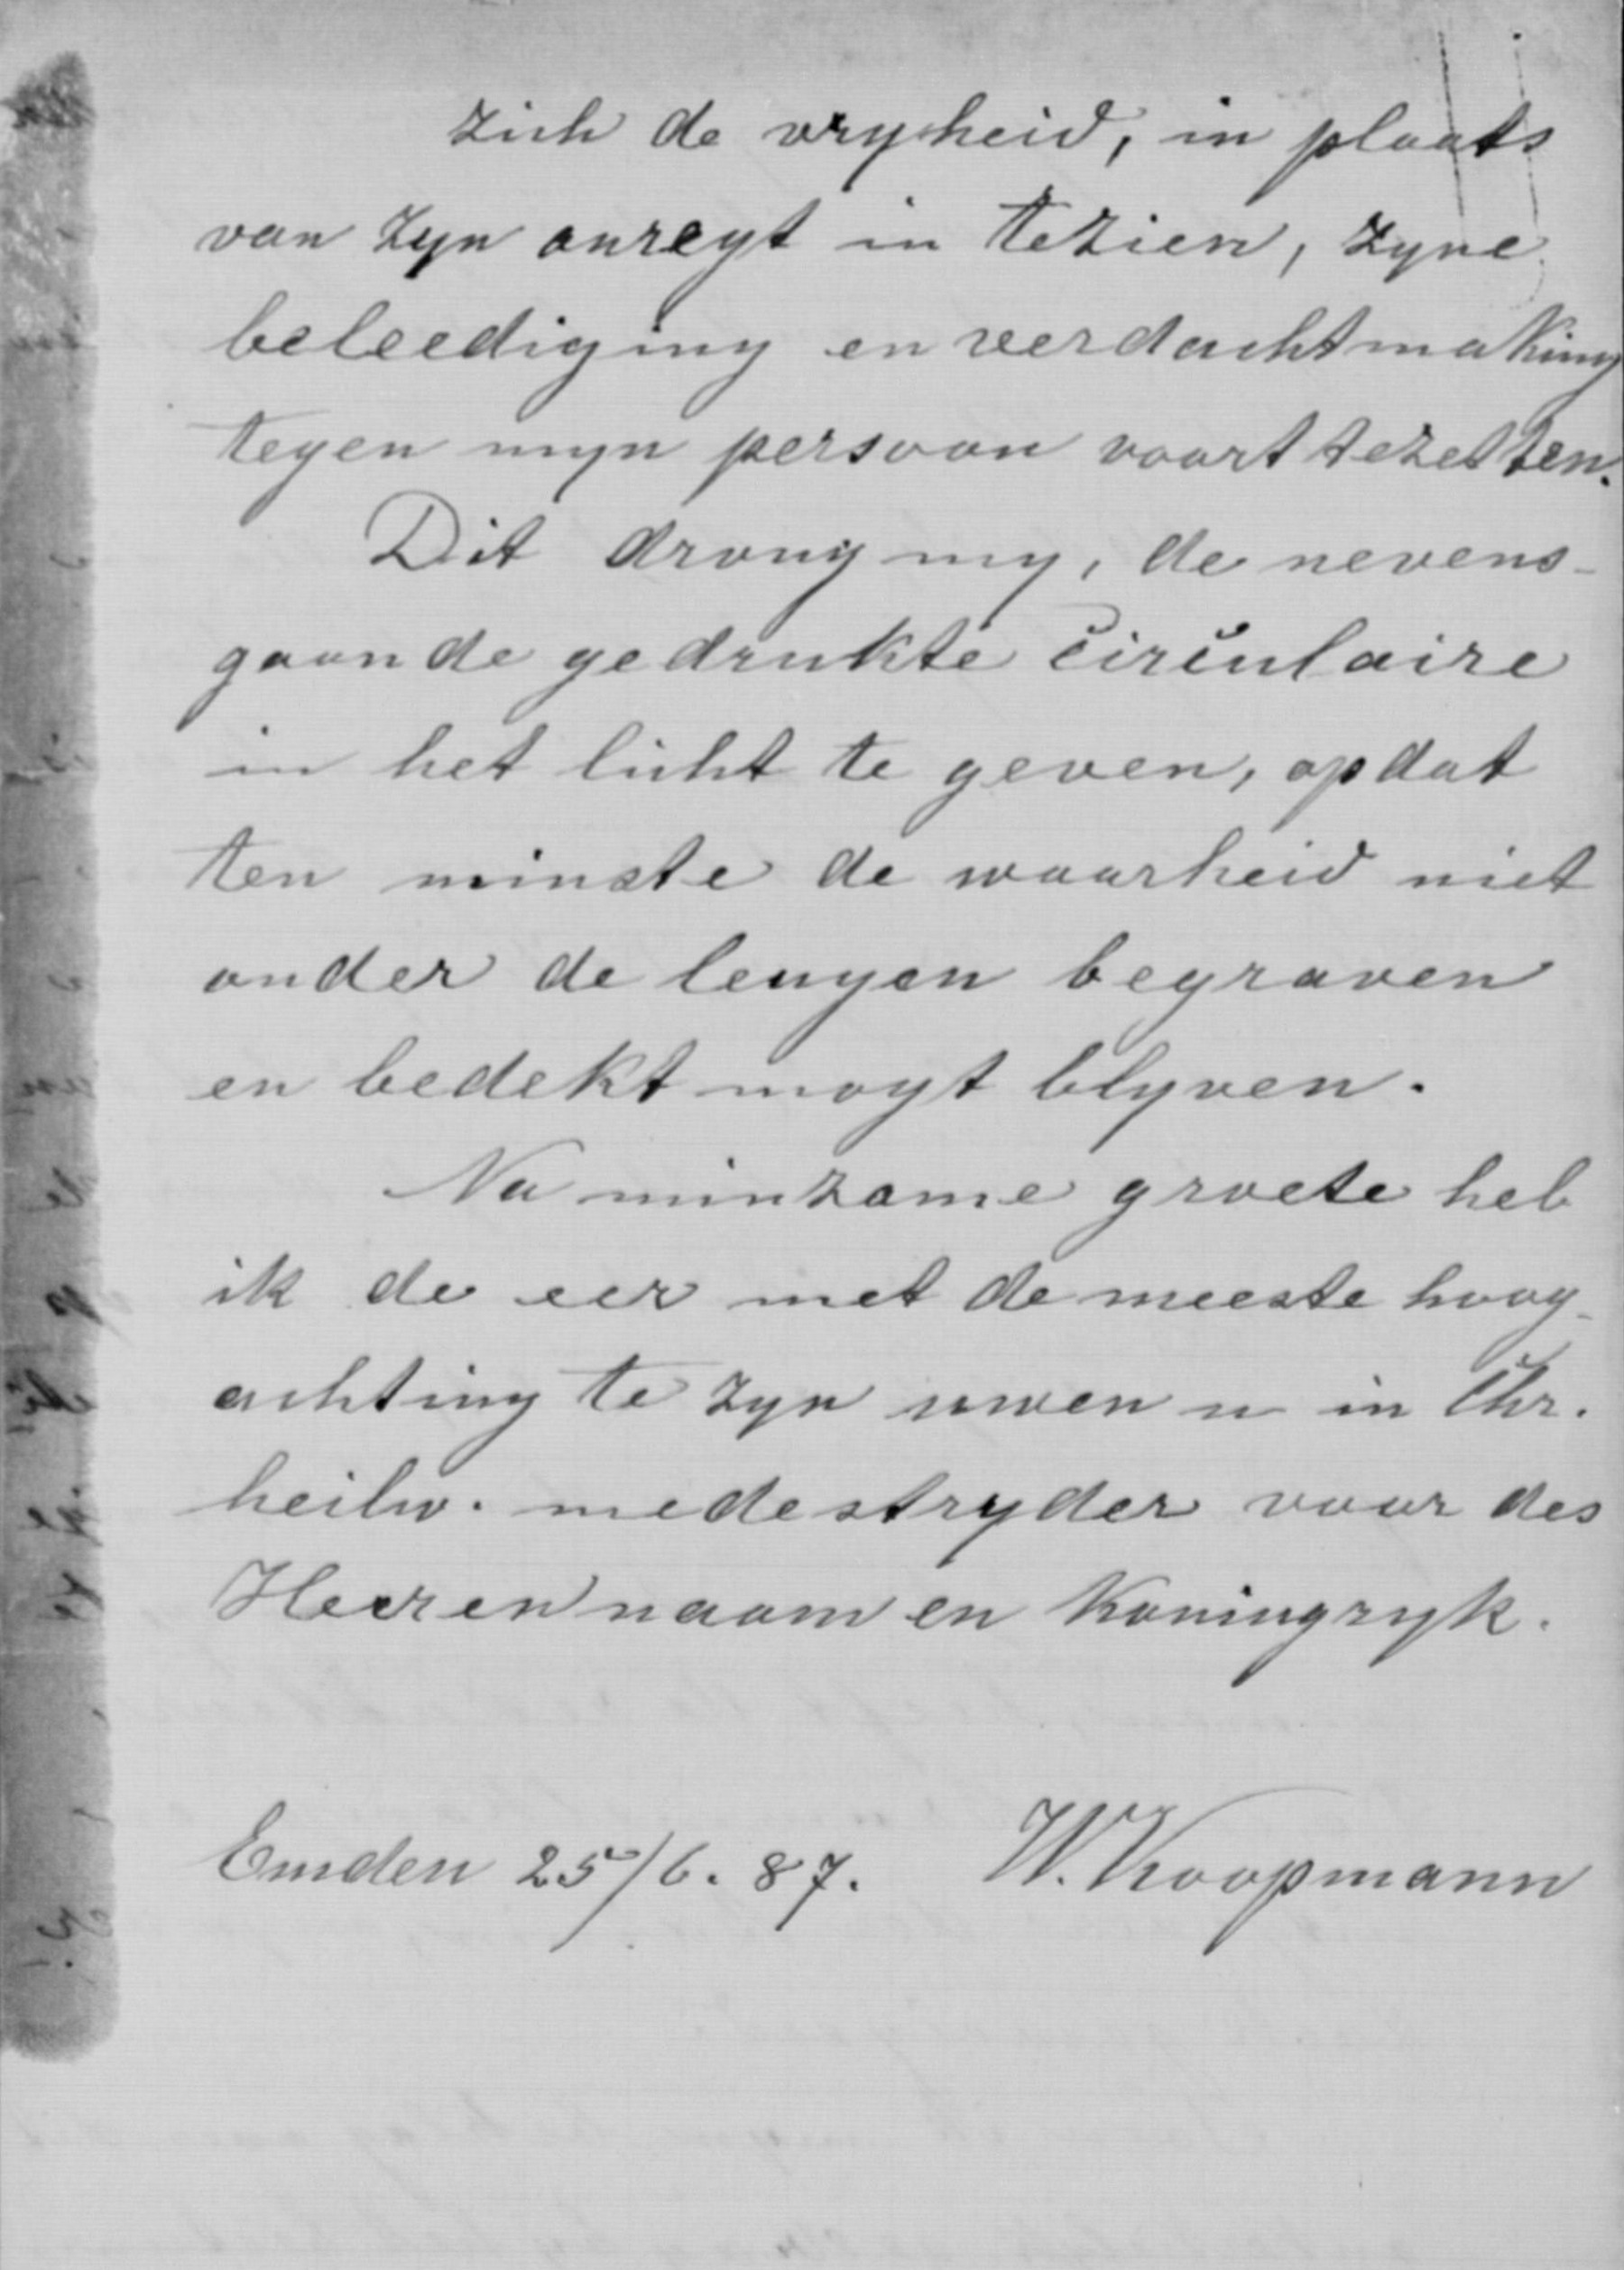 zich de vryheid, in plaats
van zyn onregt in tezien, zyne
beleediging en verdachtmaking
tegen myn persoon voort tezetten.
Dit drong my, de nevens-
gaande gedrukte circulaire
in het licht te geven, opdat
ten minste de waarheid niet
onder de leugen begraven
en bedekt mogt blyven.
Na minzame groete heb
ik de eer met de meeste hoog-
achting te zyn uwen u in Chr.
heilw. medestryder voor des
Heeren naam en Koningryk.
Emden 25/6. 87. W. Koopmann